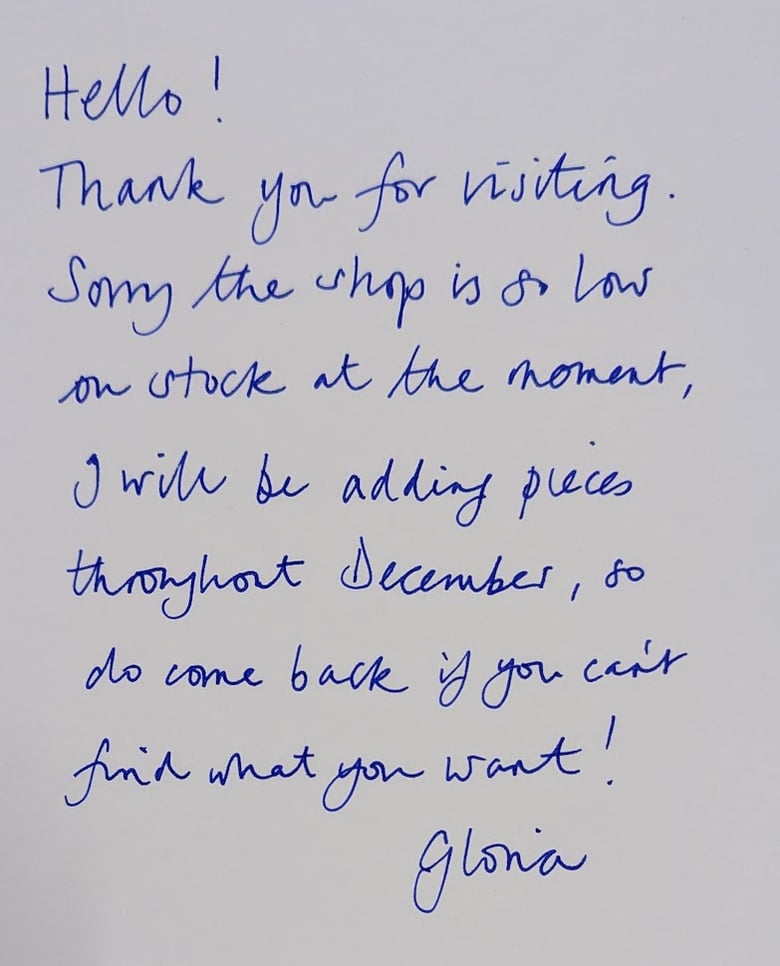 Hello!
Thank you for visiting.
Sorry the shop is so low
on stock at the moment,
I will be adding pieces
throughout December, so
do come back if you can't
find what you want!
Gloria